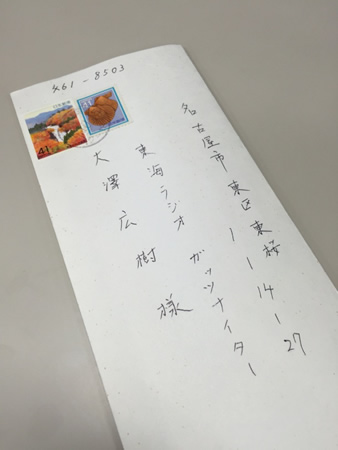 461-8503
名古屋市東区東桜
1-14-27
東海ラジオ ガッツナイター
大澤広樹 様
41